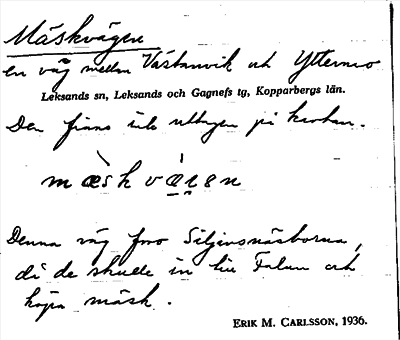 Mäskvägen
en väg mellan Västanvik och Yttermo
Leksands sn, Leksands och Gagnefs tg, Kopparbergs län.
Den finns inte uttagen på kartan.
mæ̀skvæ̀gen
Denna väg foro Siljansnäsborna,
då de skulle in till Falun och
köpa mäsk.
ERIK M. CARLSSON, 1936.